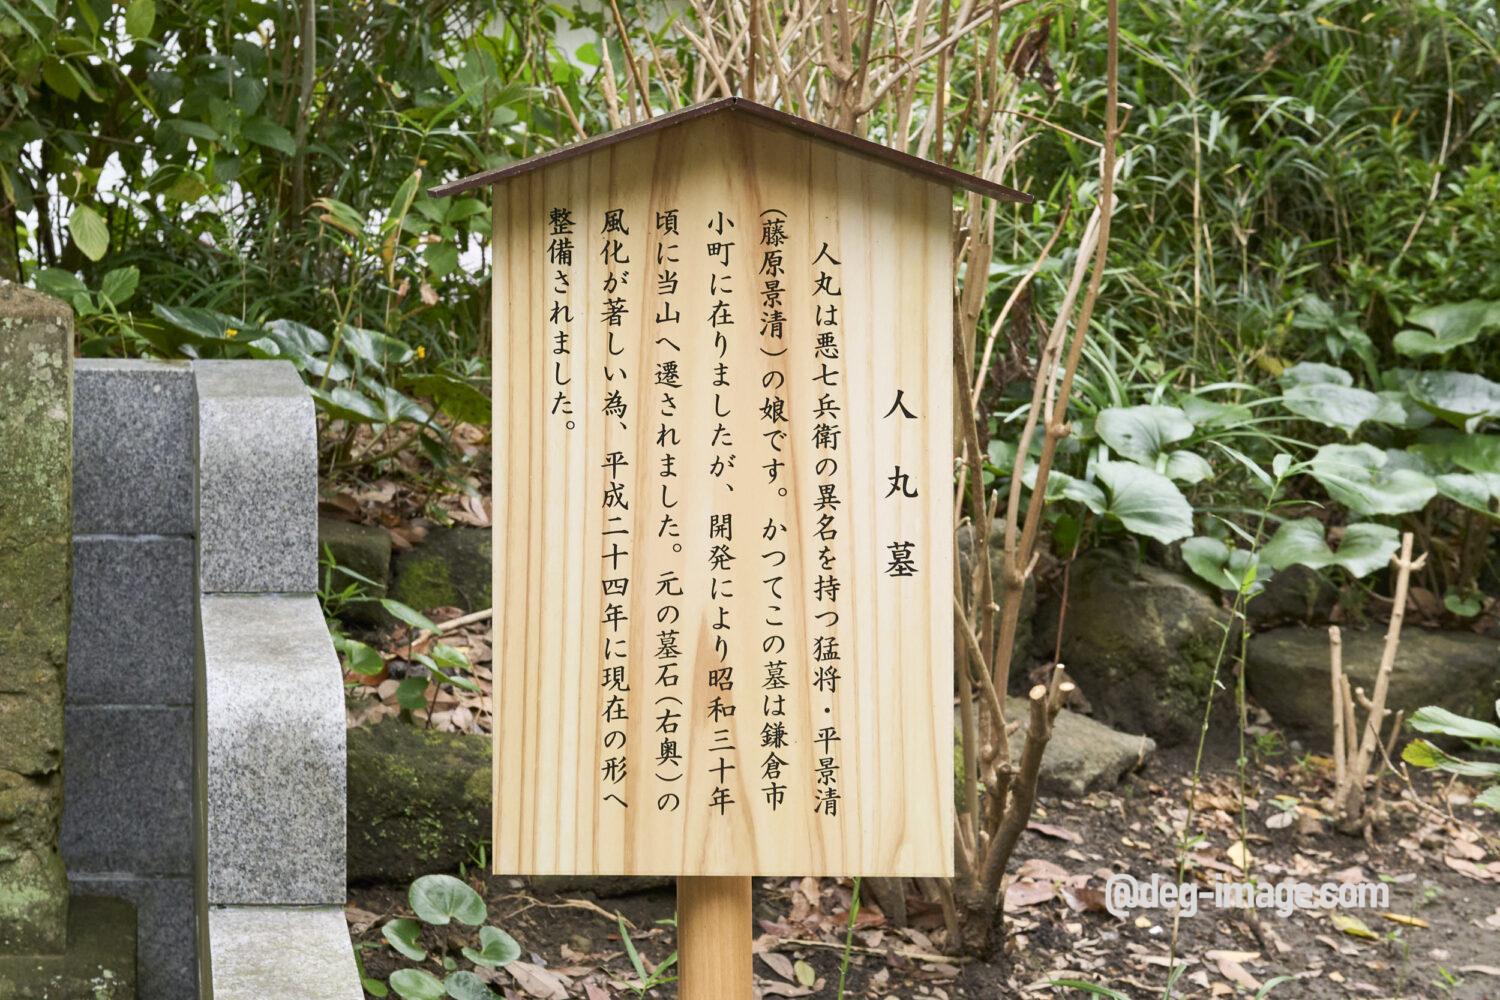 人丸墓
人丸は悪七兵衛の異名を持つ猛将・平景清
(藤原景清)の娘です。かつてこの墓は鎌倉市
小町に在りましたが、開発により昭和三十年
頃に当山へ遷されました。元の墓石(右奥)の
風化が著しい為、平成二十四年に現在の形へ
整備されました。
@deg-image.com